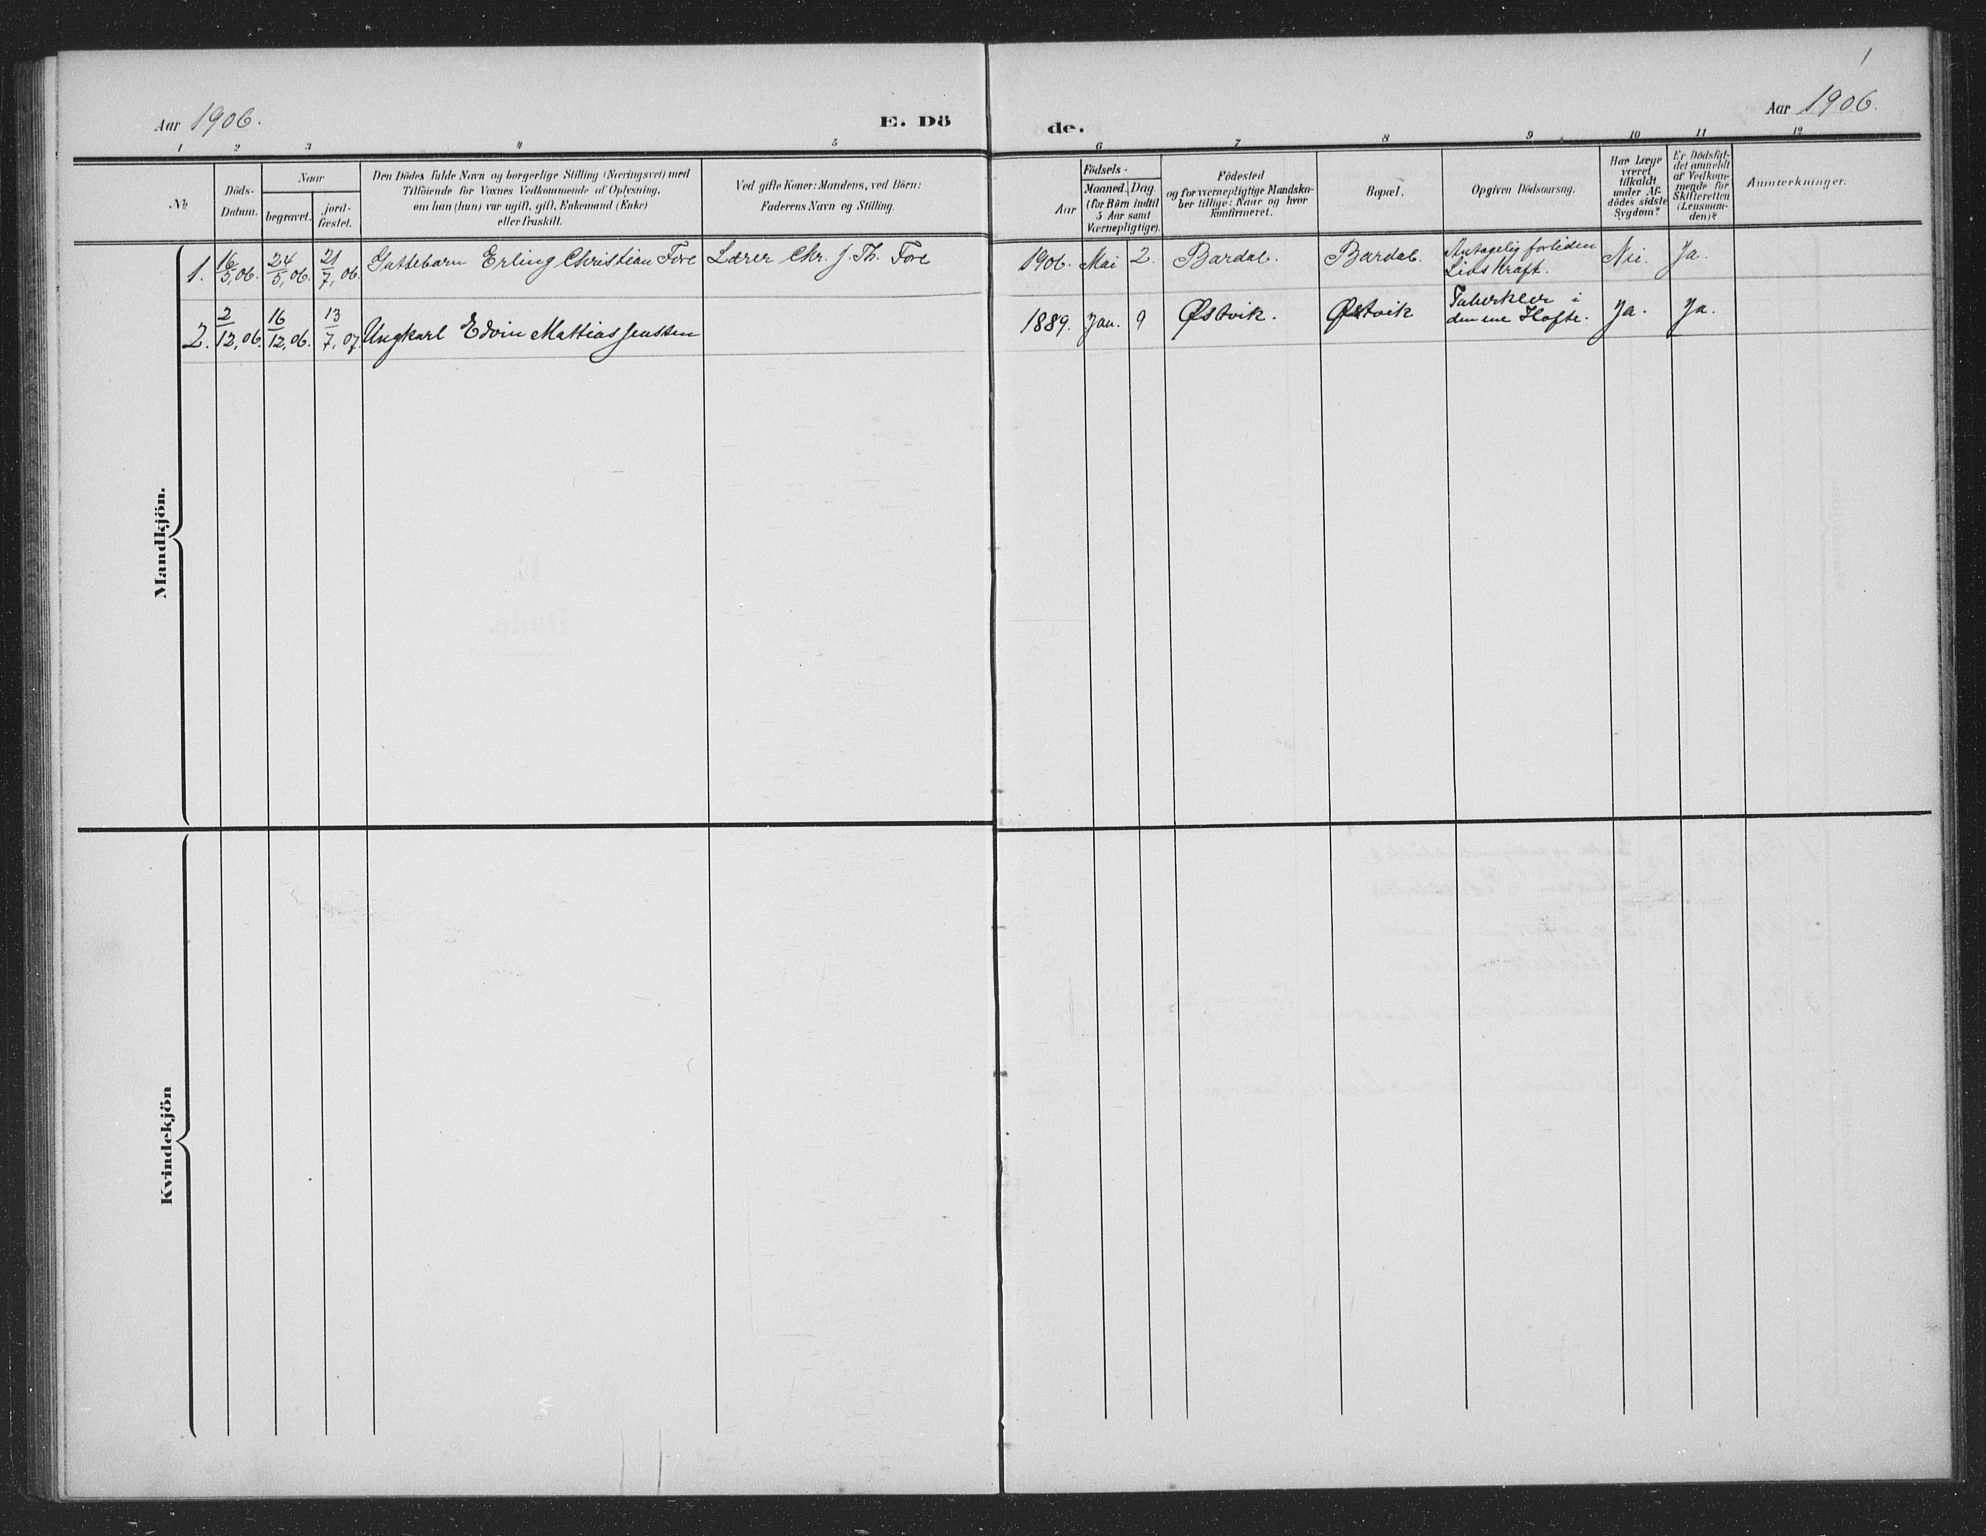 1
Aar 1906.
E. Dö
de.
Aar 1906.
1 2 3 4 5 6 7 8 9 10 11 12
№
Döds-
Datum.
Naar
begravet.
jord-
fæstet.
Den Dödes fulde Navn og borgerlige Stilling (Næringsvei) med
Tilföiende for Voxnes Vedkommende af Oplysning,
om han (hun) var ugift, gift, Enkemand (Enke)
eller fraskilt.
Ved gifte Koner: Mandens, ved Börn:
Faderens Navn og Stilling.
Födsels-
Aar
Maaned. Dag.
(for Börn indtil
5 Aar samt
Værnepligtige).
Födested
og for værnepligtige Mandska-
ber tillige: Naar og hvor
konfirmeret.
Bopæl.
Opgiven Dödsaarsag.
Har Læge
været
tilkaldt
under Af-
dödes sidste
Sygdom?
Er Dödsfal-
det anmeldt
af Vedkom-
mende for
Skifteretten
(Lensman-
den)?
Anmærkninger.
Mandkjön.
1. 16/5, 06. 24/5, 06. 21/7, 06. Guttebarn Erling Christian Fore Lærer Chr. J. Th. Fore 1906. Mai 2. Bardal. Bardal. Antagelig forliden
Livskraft. Nei. Ja.
2. 2/12, 06. 16/12, 06. 13/7, 07. Ungkarl Edvin Mattias Jensen 1889. Jan. 9 Østvik. Østvik Tuberkler i
den ene Hofte. Ja. Ja.
Kvindekjön